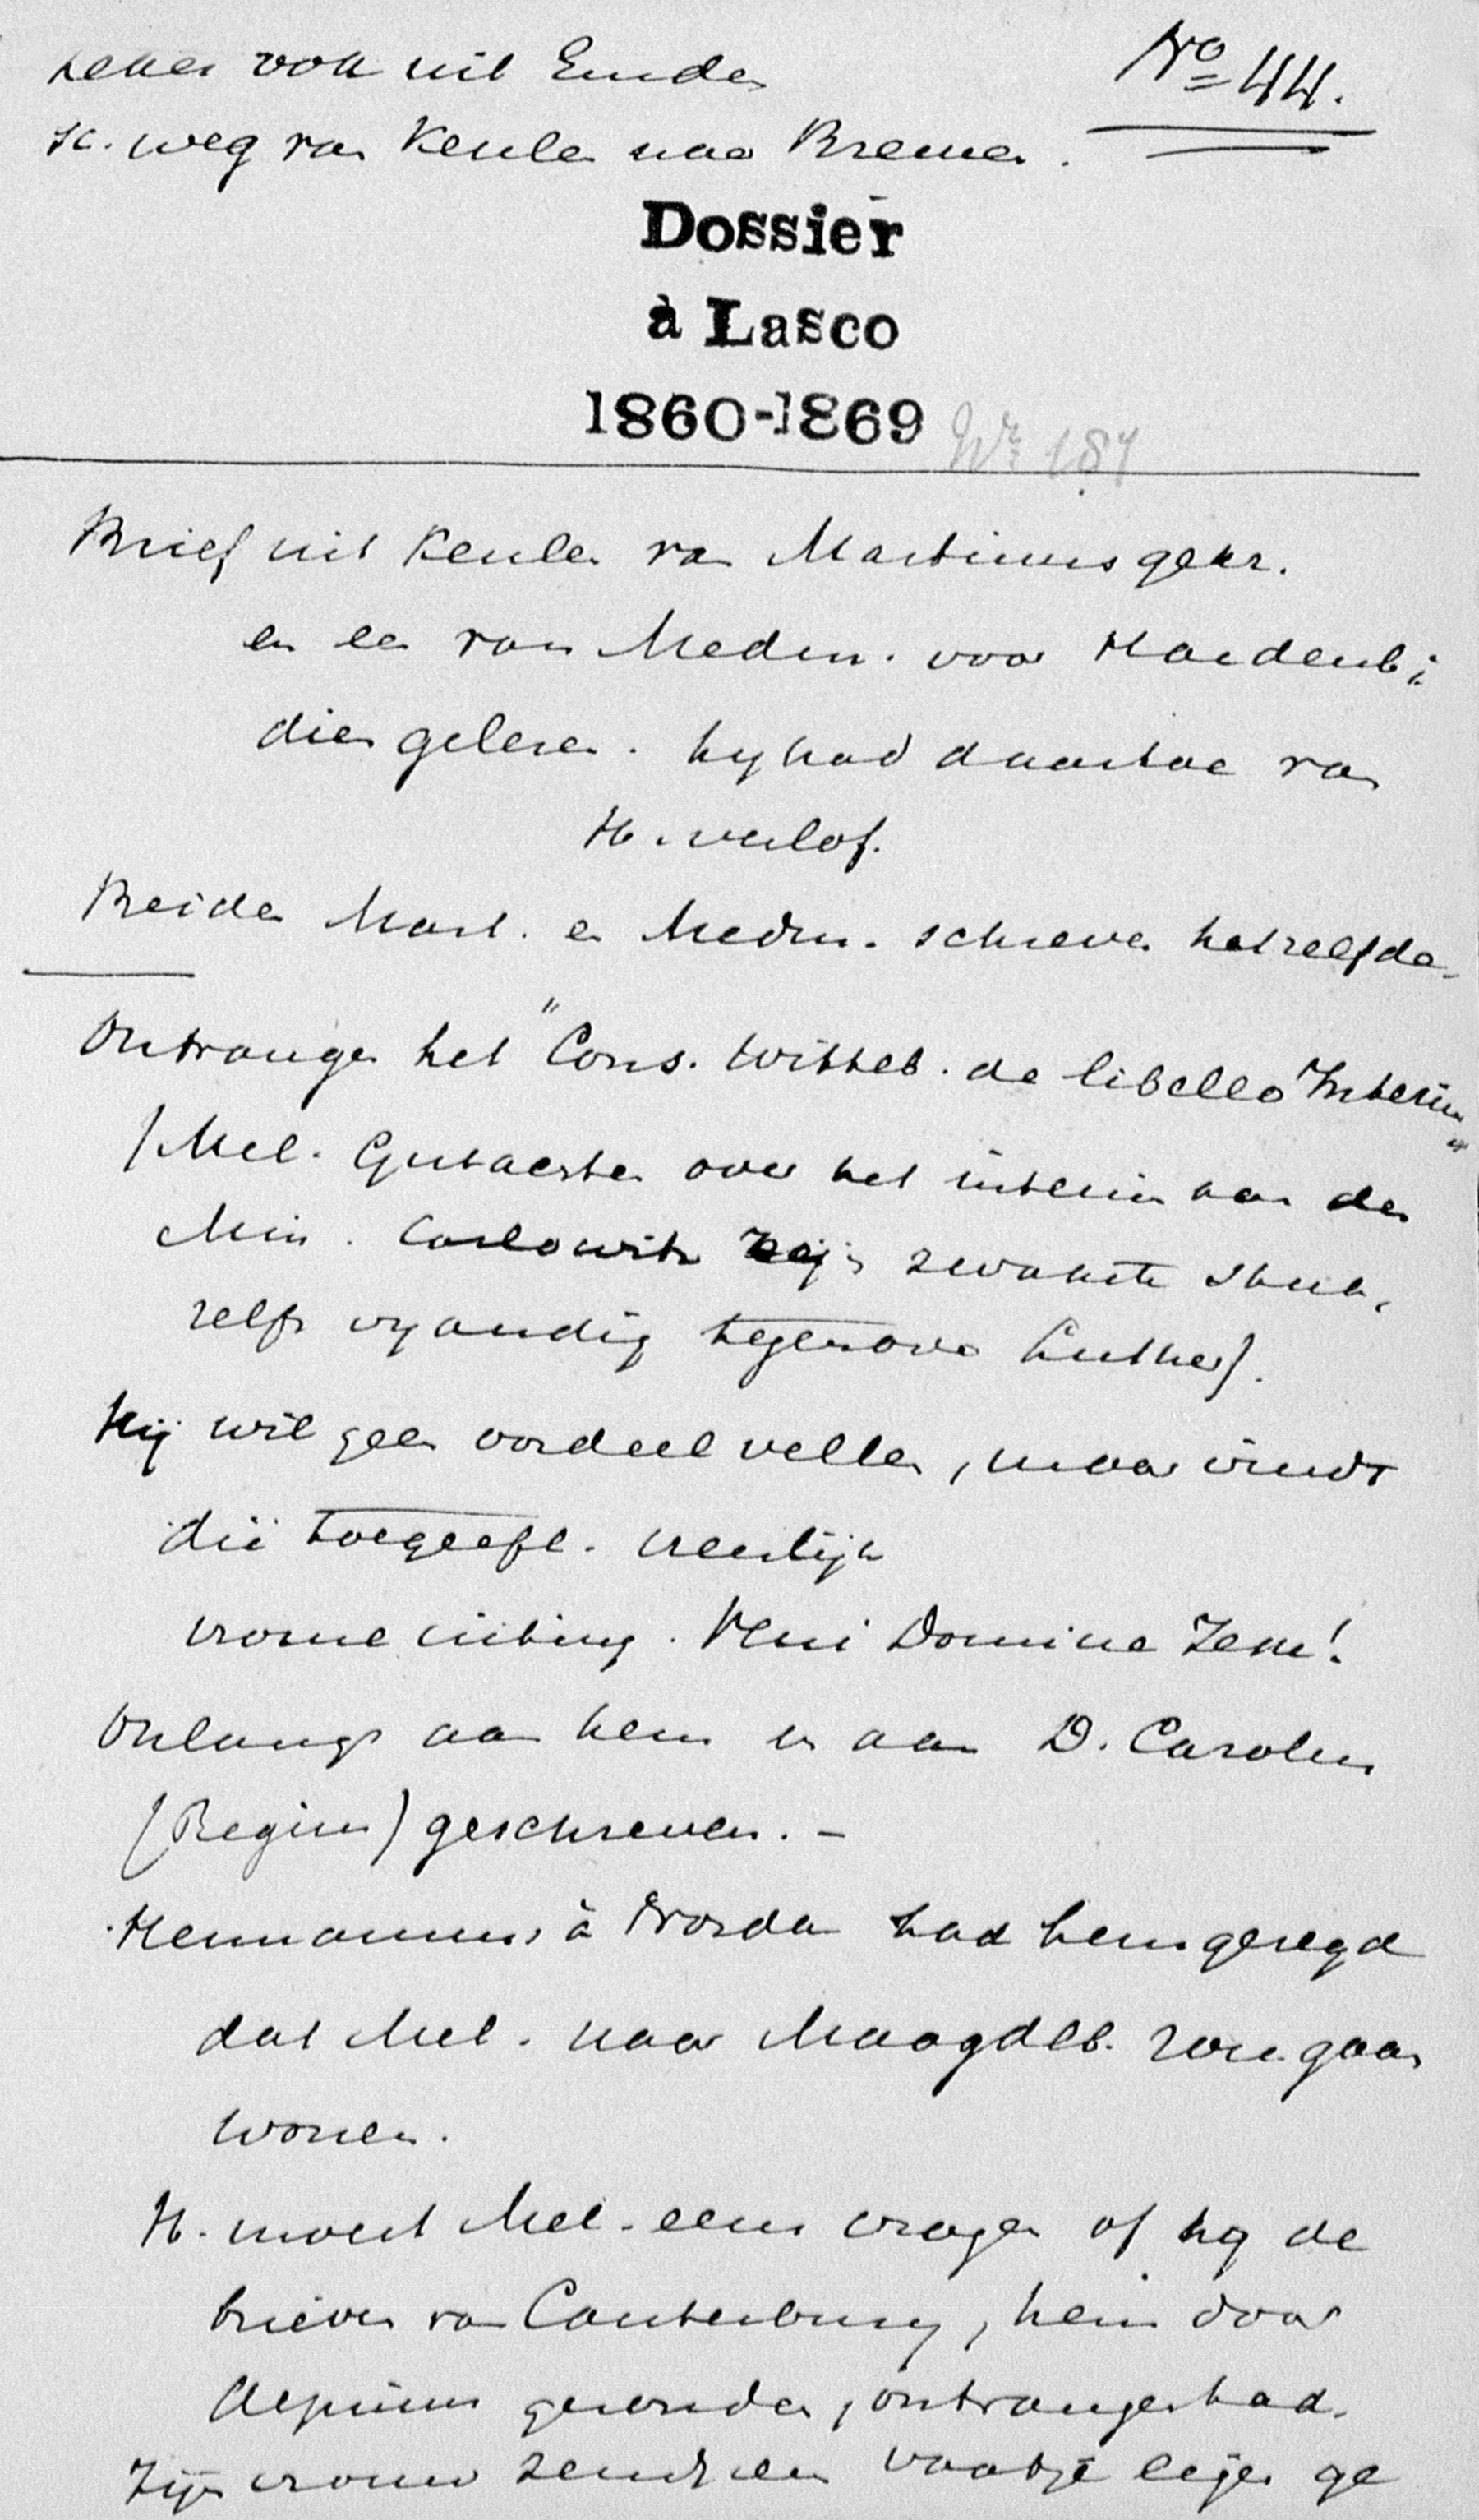 zeker ook uit Emden
sc. weg van Keulen naar Bremen.
No 44.
Dossier
à Lasco
1860-1869
Nr 187
Brief uit Keulen van Martinus gekr.
en een van Medm. voor Hardenb;
dien gelezen. hy had daartoe van
H. verlof.
Beiden Mart. en Medm. schreven hetzelfde
Ontvangen het "Cons. Witteb. de libello Interim"
(Mel. Gutachten over het interim aan den
Min. Carlowitz zijn zwakste stuk,
zelfs vyandig tegenover Luther).
Hij wil geen oordeel vellen, maar vindt
die toegeefl. vreeslijk
vrome uiting. Veni Domine Jesu!
Onlangs aan hem en aan D. Carolum
(Regium) geschreven. -
Hermannus à Worda had hem gezegd
dat Mel. naar Maagdeb. zou gaan
wonen.
H. moest Mel. eens vragen of hij de
brieven van Canterbury, hem door
Aepinus gezonden, ontvangen had.
Zijn vrouw zendt een vaatje eijer ge